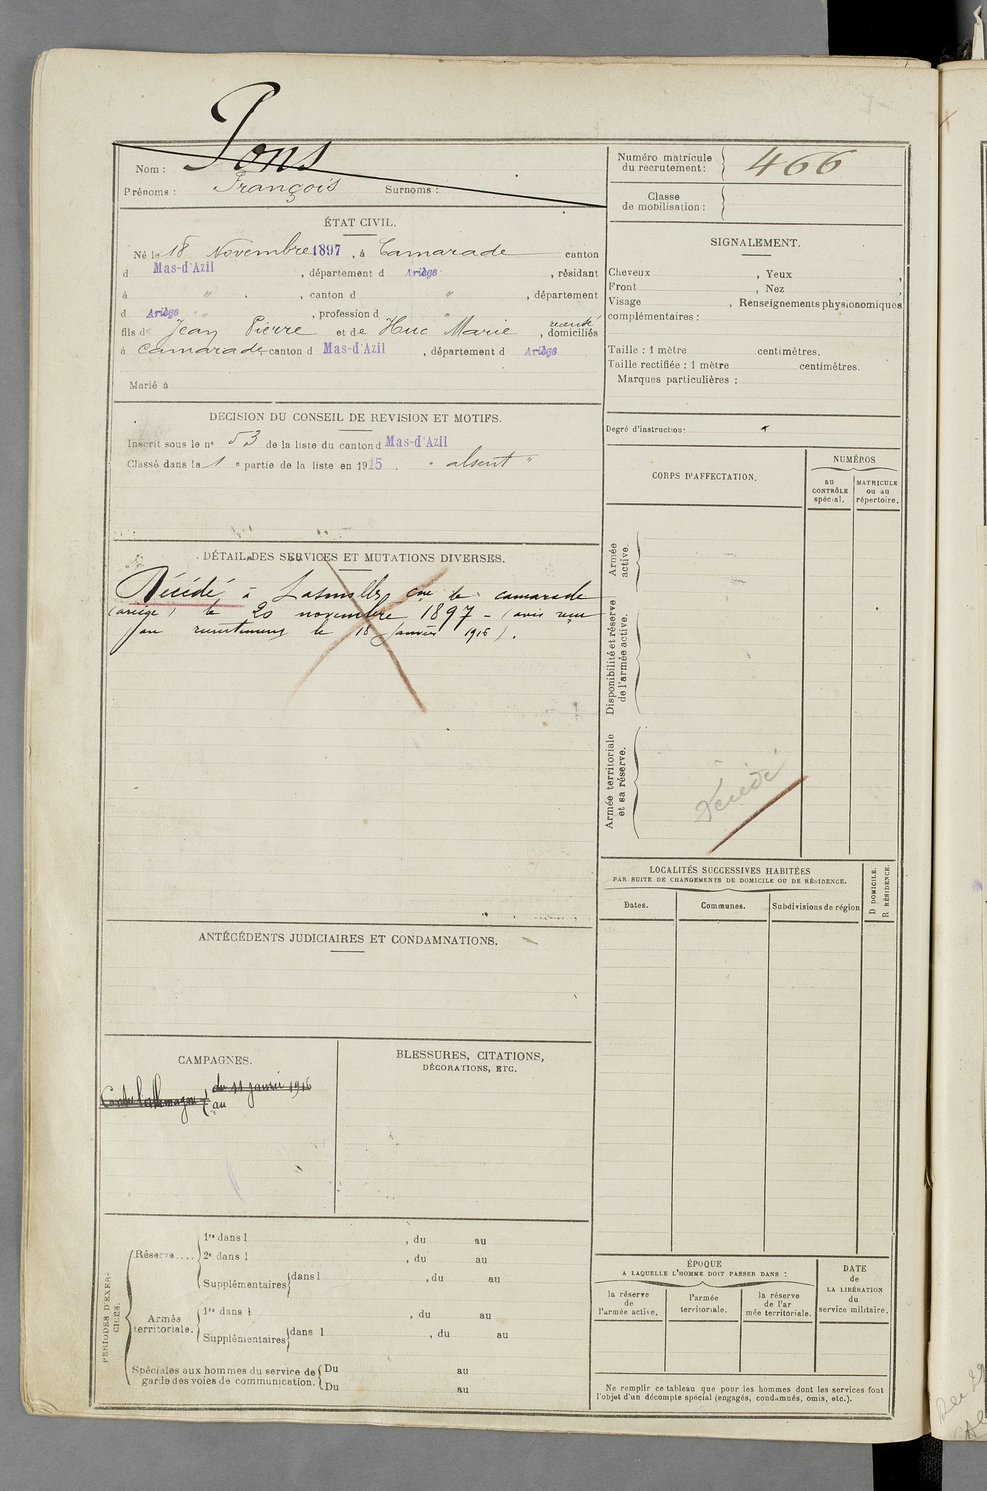 Pons
Nom :
Prénoms : François Surnoms :
Numéro matricule
du recrutement : 466
Classe
de mobilisation :
ÉTAT CIVIL.
Né le 18 Novembre 1897, à Camarade canton
d Mas-d'Azil, département d Ariège, résidant
à " , canton d " , département
d Ariège, profession d "
fils de Jean Pierre et de Huc Marie, domiciliés
à Camarade, canton d Mas-d'Azil, département d Ariège
Marié à
SIGNALEMENT.
Cheveux , Yeux ,
Front , Nez
Visage , Renseignements physionomiques
complémentaires :
Taille : 1 mètre centimètres.
Taille rectifiée : 1 mètre centimètres.
Marques particulières :
Degré d'instruction:
DECISION DU CONSEIL DE REVISION ET MOTIFS.
Inscrit sous le n° 53 de la liste du canton d Mas-d'Azil
Classé dans la 1 e partie de la liste en 1915. " absent "
CORPS D'AFFECTATION.
NUMÉROS
au
CONTRÔLE
spécial.
MATRICULE
ou au
répertoire.
Armée
active.
Disponibilité et réserve
de l'armée active.
Armée territoriale
et sa réserve.
Décédé
DÉTAIL DES SERVICES ET MUTATIONS DIVERSES.
Décédé à cne de camarade
(ariège) le 20 novembre 1897 - (avis reçu
au recrutement le 18 janvier 1916).
LOCALITÉS SUCCESSIVES HABITÉES
PAR SUITE DE CHANGEMENTS DE DOMICILE OU DE RÉSIDENCE.
Dates.
Communes.
Subdivisions de région
D DOMICILE.
R RÉSIDENCE.
ANTÉCÉDENTS JUDICIAIRES ET CONDAMNATIONS.
CAMPAGNES.
Contre l'allemagne du 11 janvier 1916
au
BLESSURES, CITATIONS,
DÉCORATIONS, ETC.
PÉRIODES D'EXER-
CICES.
Réserve....
1re dans l , du au
2e dans l , du au
Supplémentaires dans l , du au
Armée
territoriale.
1re dans l , du au
Supplémentaires dans l , du au
Spéciales aux hommes du service de
garde des voies de communication.
Du au
Du au
ÉPOQUE
A LAQUELLE L'HOMME DOIT PASSER DANS :
la réserve
de
l'armée active.
l'armée
territoriale.
la réserve
de l'ar
mée territoriale.
DATE
de
LA LIBÉRATION
du
service militaire.
Ne remplir ce tableau que pour les hommes dont les services font
l'objet d'un décompte spécial (engagés, condamnés, omis, etc.).